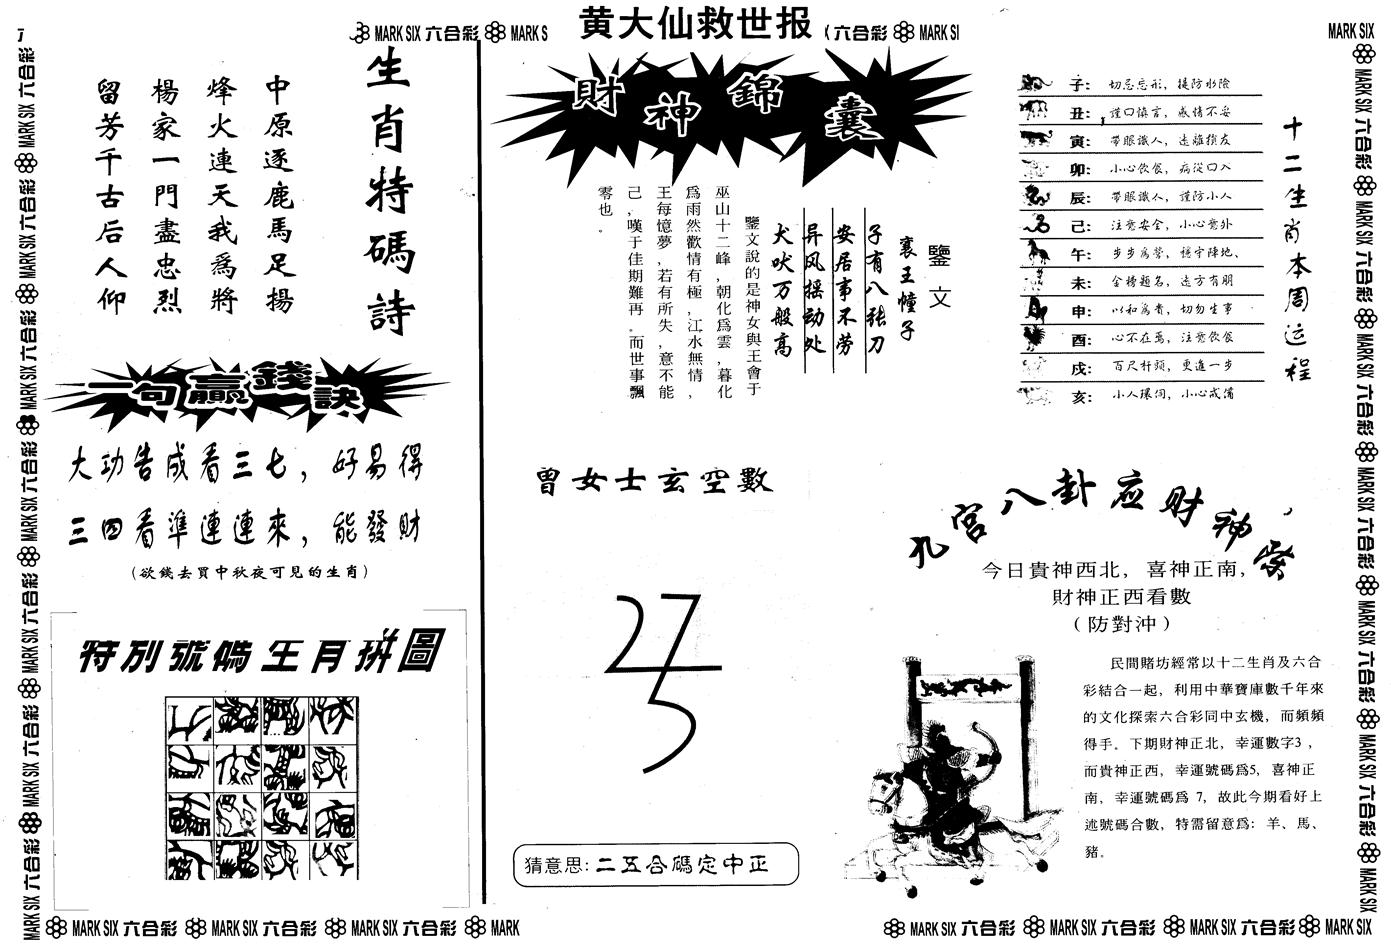 黄大仙救世报
MARK SIX 六合彩 MARK S
六合彩 MARK SI
MARK SIX
生肖特碼詩
中原逐鹿馬足揚
烽火連天我為將
楊家一門盡忠烈
留芳千古后人仰
一句贏錢訣
大功告成看三七，好易得
三四看準連連來，能發財
(欲錢去買中秋夜可見的生肖)
特別號碼生肖拼圖
財神錦囊
鑒文
襄王幢子
子有八張刀
安居事不劳
异风摇动处
犬吠万般高
鑒文說的是神女與王會于
巫山十二峰,朝化爲雲,暮化
爲雨然歡情有極,江水無情,
王每憶夢,若有所失,意不能
己,嘆于佳期難再。而世事飄
零也。
曾女士玄空數
27
5
猜意思:二五合碼定中正
十二生肖本周运程
子: 切忌忘形，提防水險
丑: 謹口慎言，感情不妥
寅: 帶眼識人，遠離損友
卯: 小心飲食，病從口入
辰: 帶眼識人，謹防小人
己: 注意安全，小心意外
午: 步步為營，穩守陣地、
未: 金榜題名，遠方有朋
申: 以和為貴，切勿生事
酉: 心不在焉，注意飲食
戌: 百尺杆頭，更進一步
亥: 小人環伺，小心戒備
九宫八卦应财神柴
今日貴神西北，喜神正南，
財神正西看數
(防對沖)
民間賭坊經常以十二生肖及六合
彩結合一起，利用中華寶庫數千年來
的文化探索六合彩同中玄機，而頻頻
得手。下期財神正北，幸運數字3，
而貴神正西，幸運號碼爲5，喜神正
南，幸運號碼爲 7，故此今期看好上
述號碼合數，特需留意爲：羊、馬、
豬。
MARK SIX 六合彩 MARK SIX 六合彩 MARK SIX 六合彩 MARK
MARK SIX 六合彩 MARK SIX 六合彩 MARK SIX 六合彩 MARK SIX